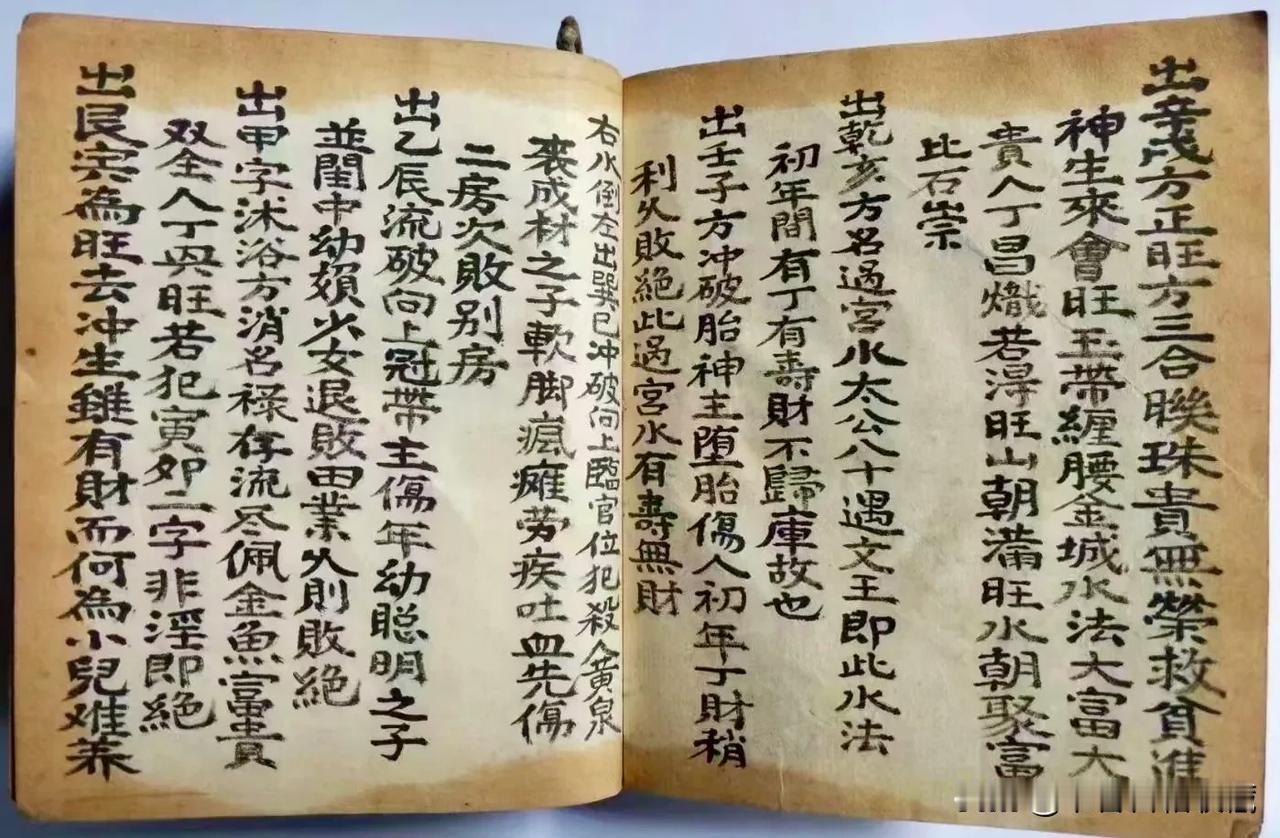 出辛戌方正旺方三合聫珠貴無榮救貧進
神生來會旺玉帶纏腰金城水法大富大
貴人丁昌熾若淂旺山朝满旺水朝聚富
比石崇
出乾亥方名過宫水太公八十遇文王即此水法
初年間有丁有壽財不歸庫故也
出壬子方冲破胎神主堕胎傷人初年丁財稍
利久敗絶此過宫水有壽無財
右水倒左出巽巳冲破向上臨官位犯殺人黄泉
丧成材之子軟脚瘋癱劳疾吐血先傷
二房次敗别房
出乙辰流破向上冠帶主傷年幼聡明之子
並閨中幼婦少女退敗田業久則敗絶
出甲字沭浴方消名禄存流尽佩金魚富貴
双全人丁兴旺若犯寅卯二字非淫即絶
出艮寅為旺去冲生雖有財而何為小兒难养